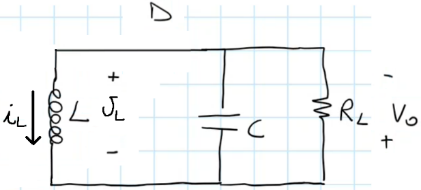 D
+
-
iL
L
UL
-
C
RL
Vo
+